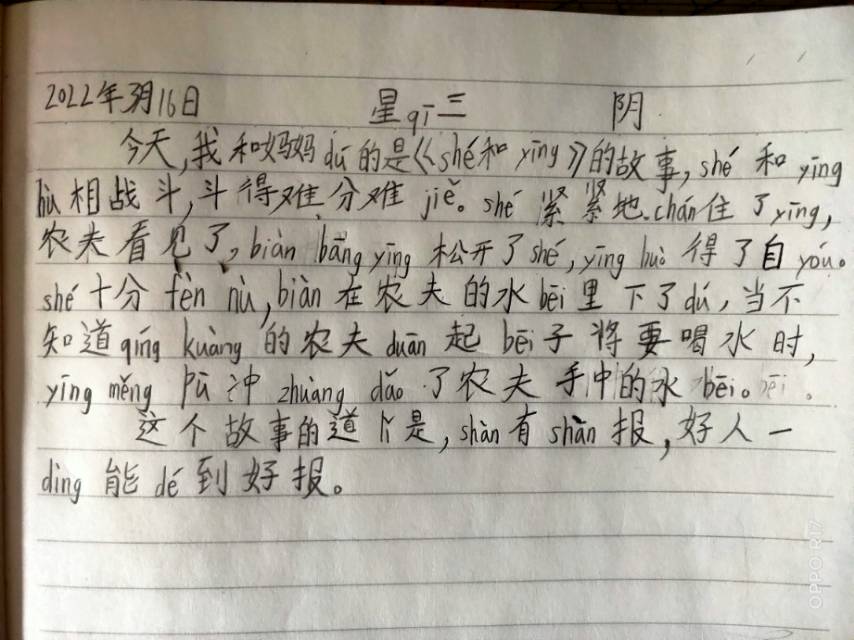 2022年3月16日 星qī三 阴
今天,我和妈妈dú的是《shé和yīng》的故事,shé和yīng
hù相战斗,斗得难分难jiě。shé紧紧地chán住了yīng,
农夫看见了,biàn bāng yīng松开了shé,yīng huò得了自yóu。
shé十分fèn nù,biàn在农夫的水bēi里下了dú,当不
知道qíng kuàng的农夫duān起bēi子将要喝水时,
yīng měng pū冲zhuàng dǎo了农夫手中的水bēi。bēi。
这个故事的道 是,shàn有shàn报,好人一
dìng能dé到好报。
OPPO R17